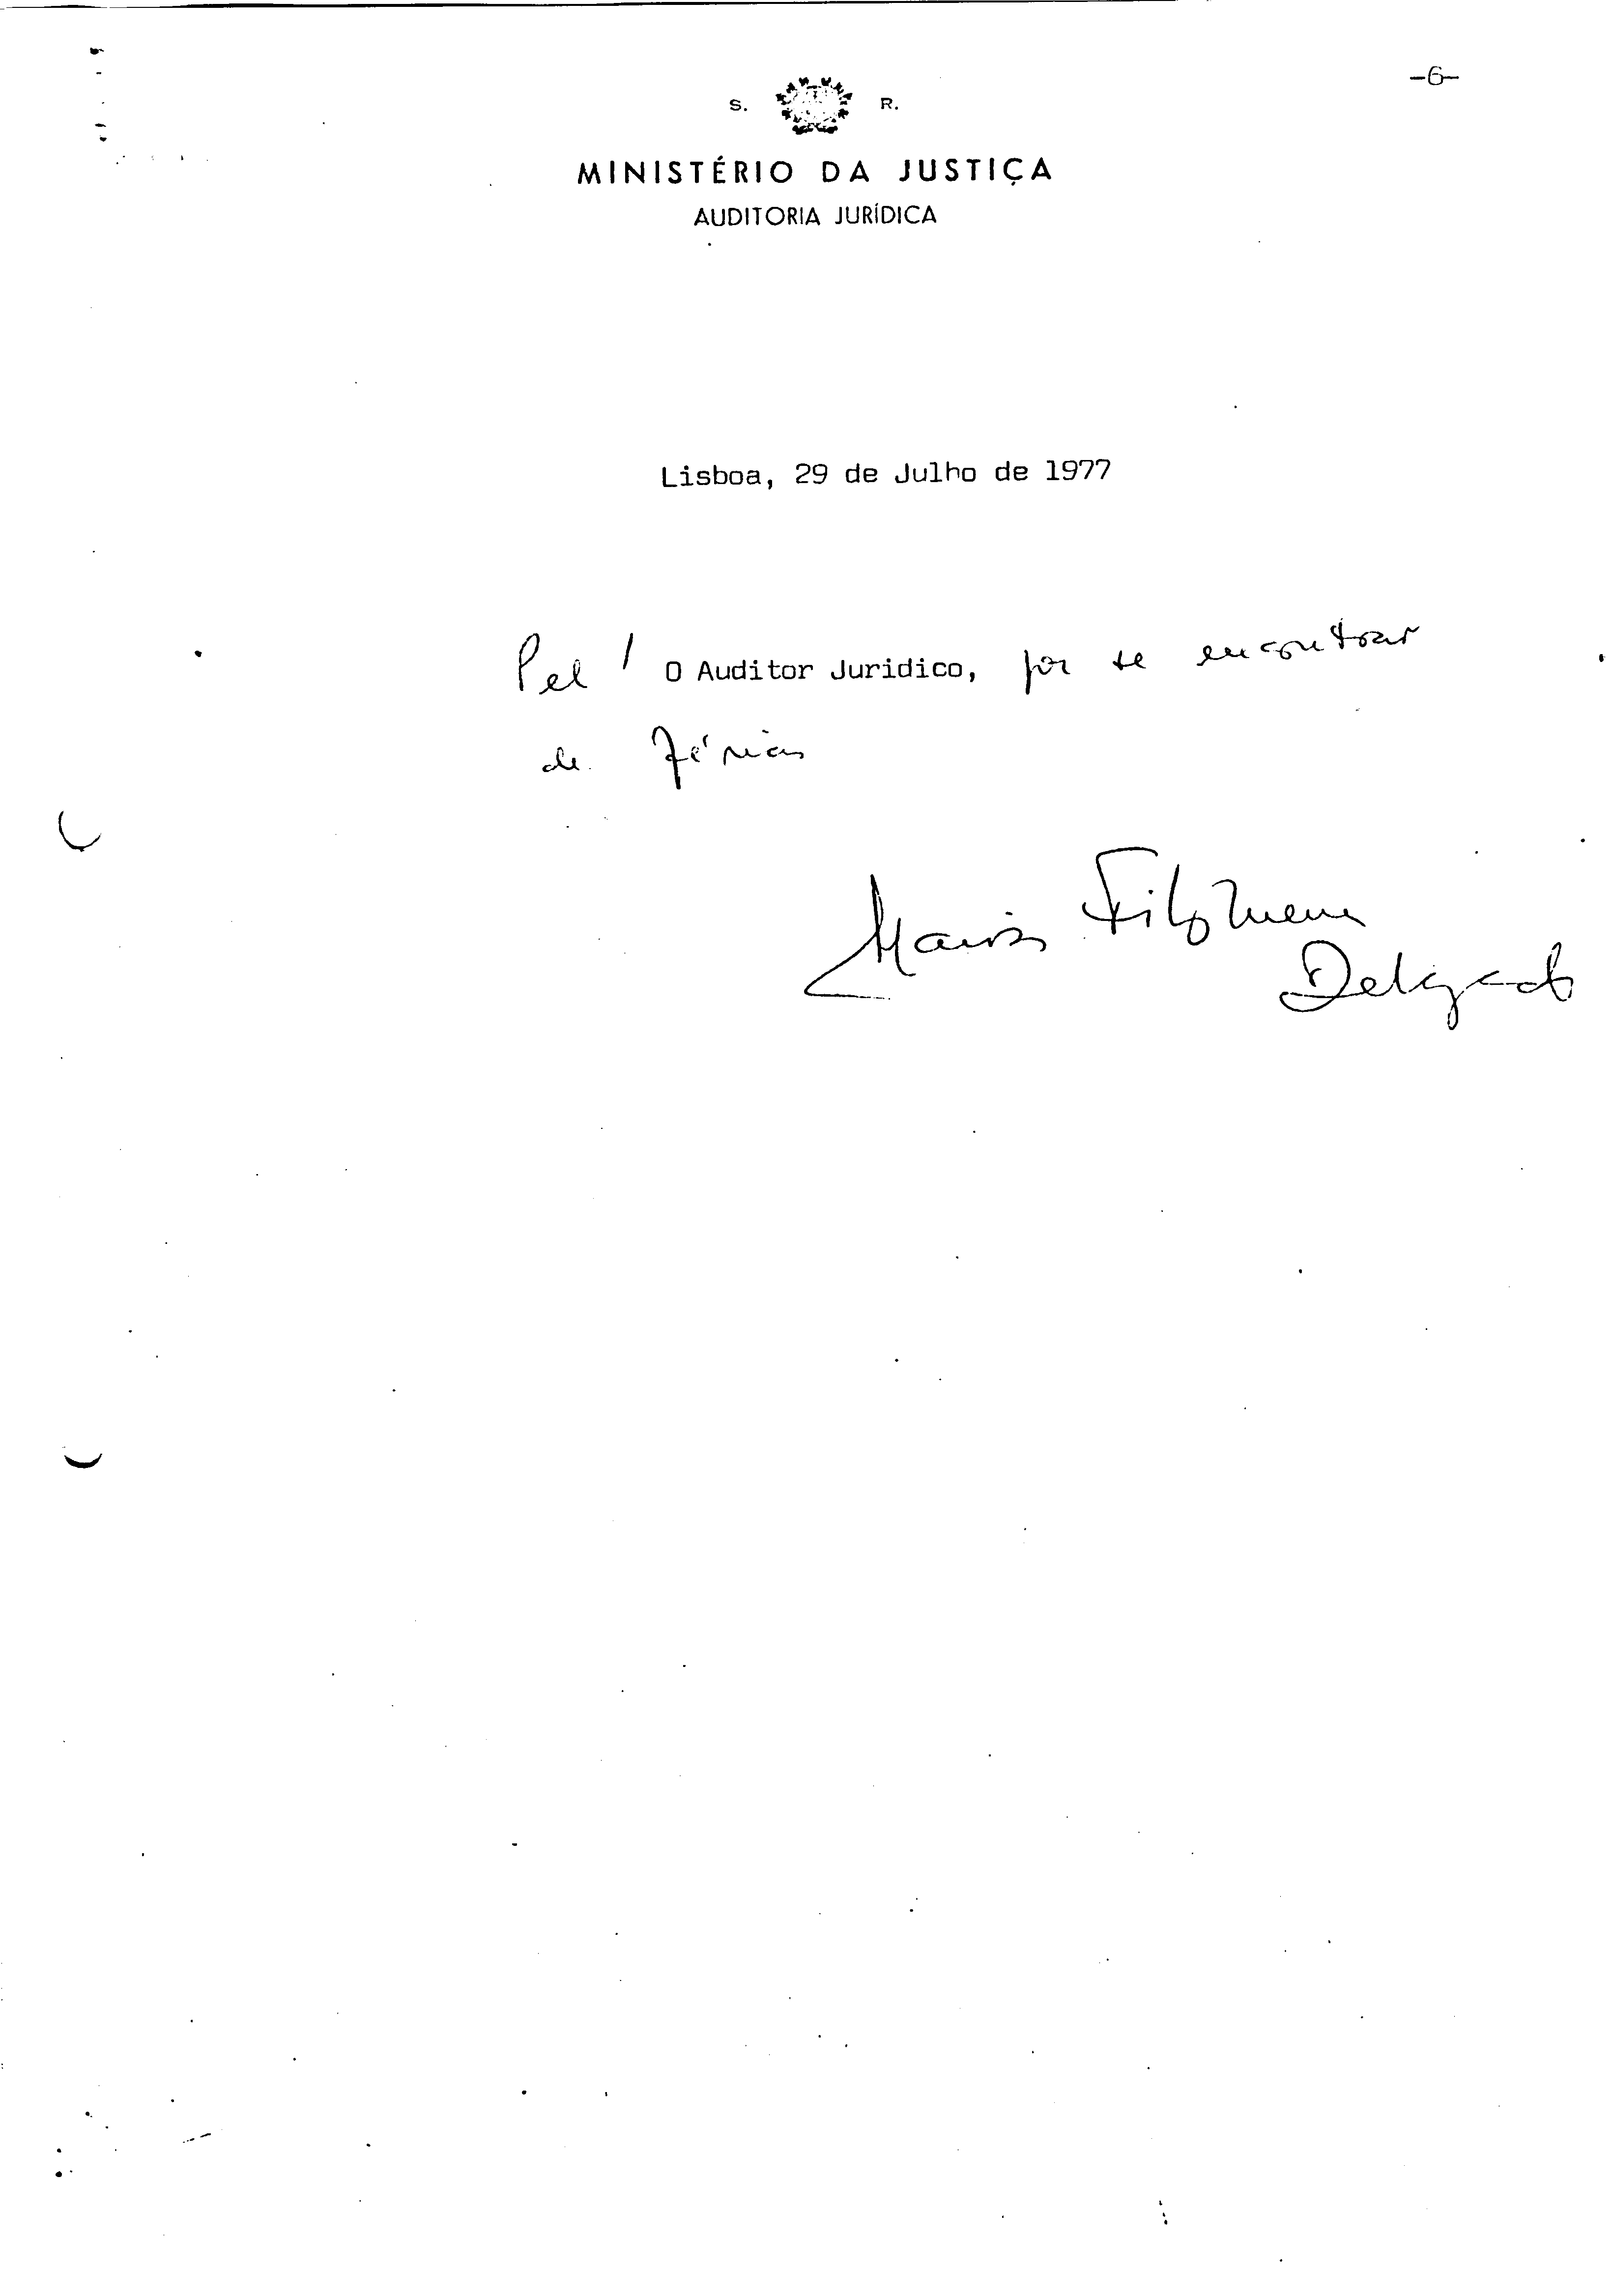 -6-
S. R.
MINISTÉRIO DA JUSTIÇA
AUDITORIA JURÍDICA
Lisboa, 29 de Julho de 1977
Pel' O Auditor Juridico, por se encontrar
de férias
Maria Filomena
Delgado